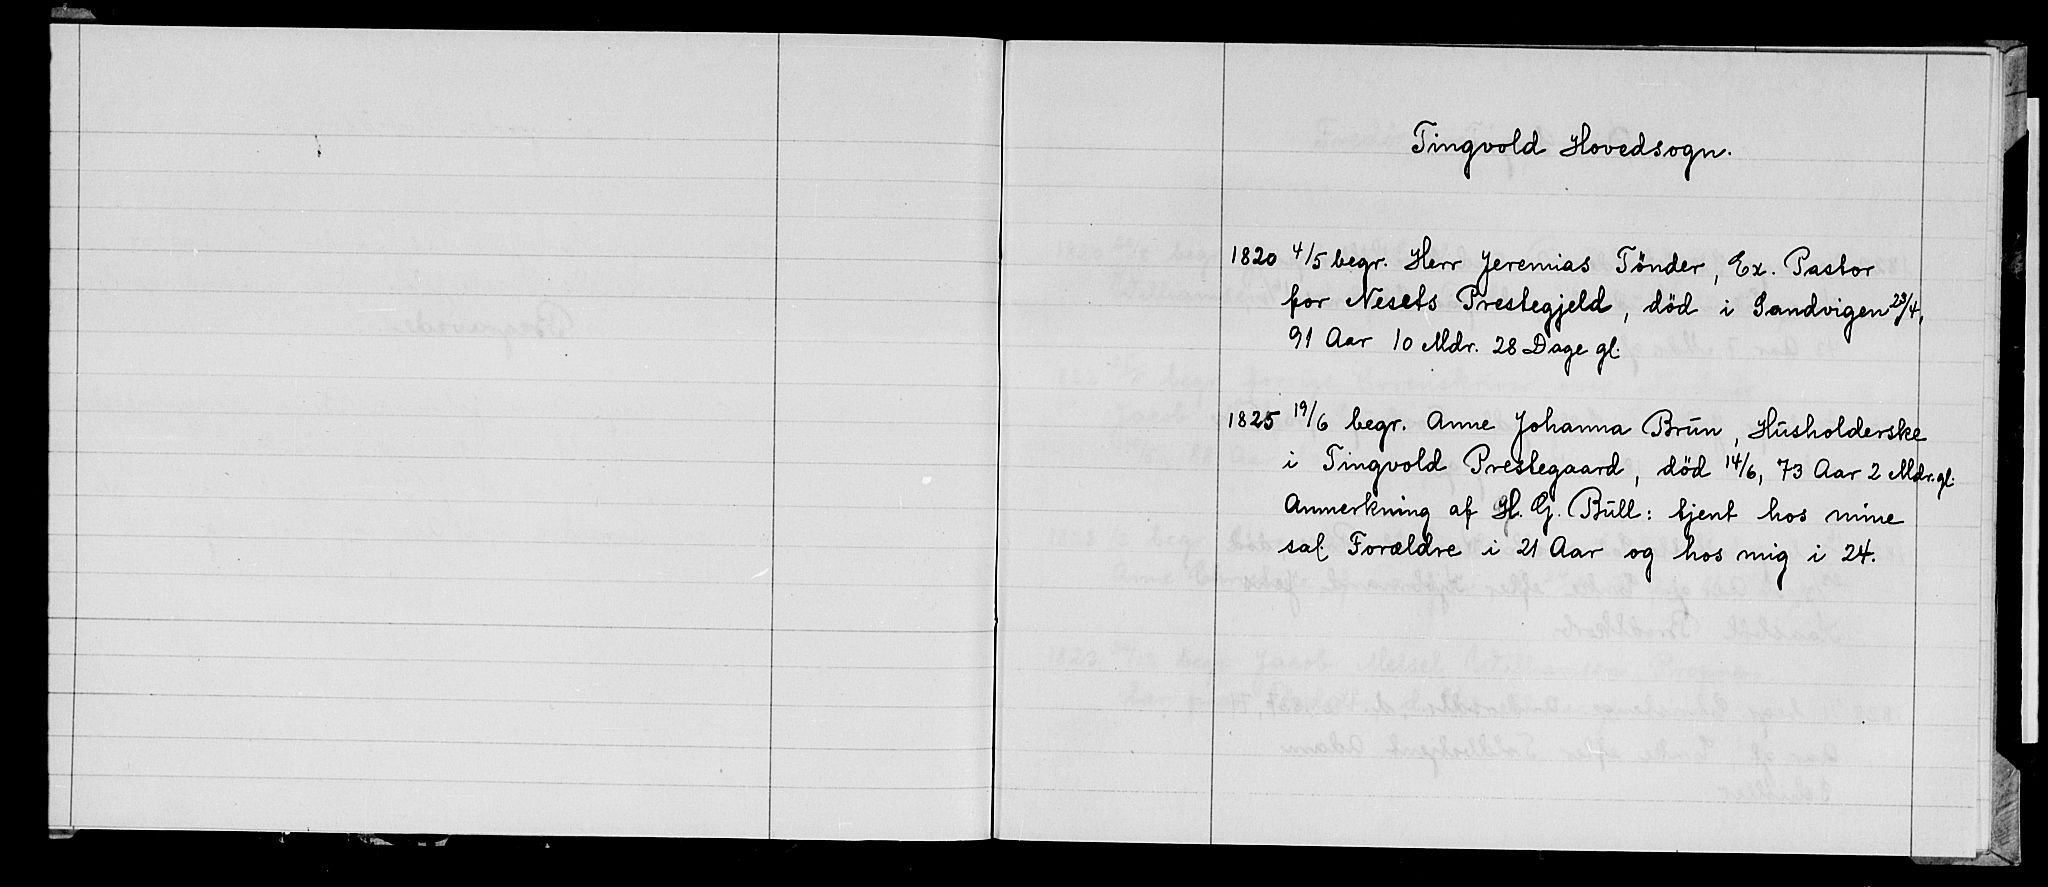 Tingvold Hovedsogn.
1820 4/5 begr. Herr Jeremias Tönder, Ex. Pastor
for Nesets Prestegjeld, död i Sandvigen 23/4,
91 Aar 10 Mdr. 28 Dage gl.
1825 19/6 begr. Anne Johanna Brŭn, Hŭsholderske
i Tingvold Prestegaard, död 14/6, 73 Aar 2 Mdr. gl.
Anmerkning af H. G. Bŭll: tjent hos mine
sal. Forældre i 21 Aar og hos mig i 24.